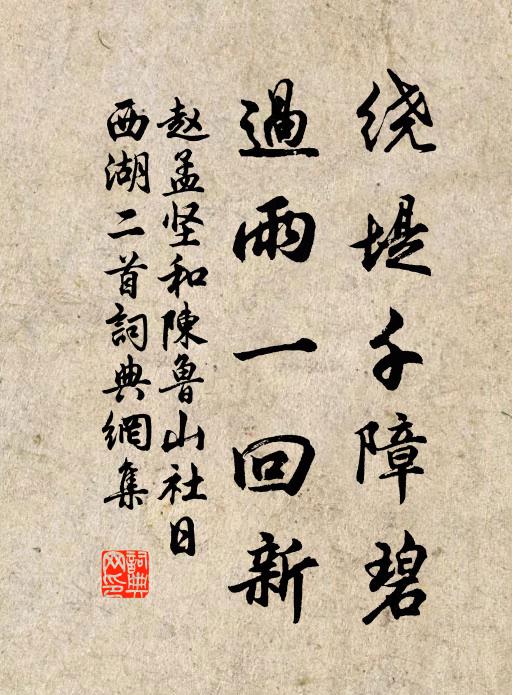 绕堤千障碧
過雨一回新
赵孟坚和陳鲁山社日
西湖二首詞典網集
詞典
网印